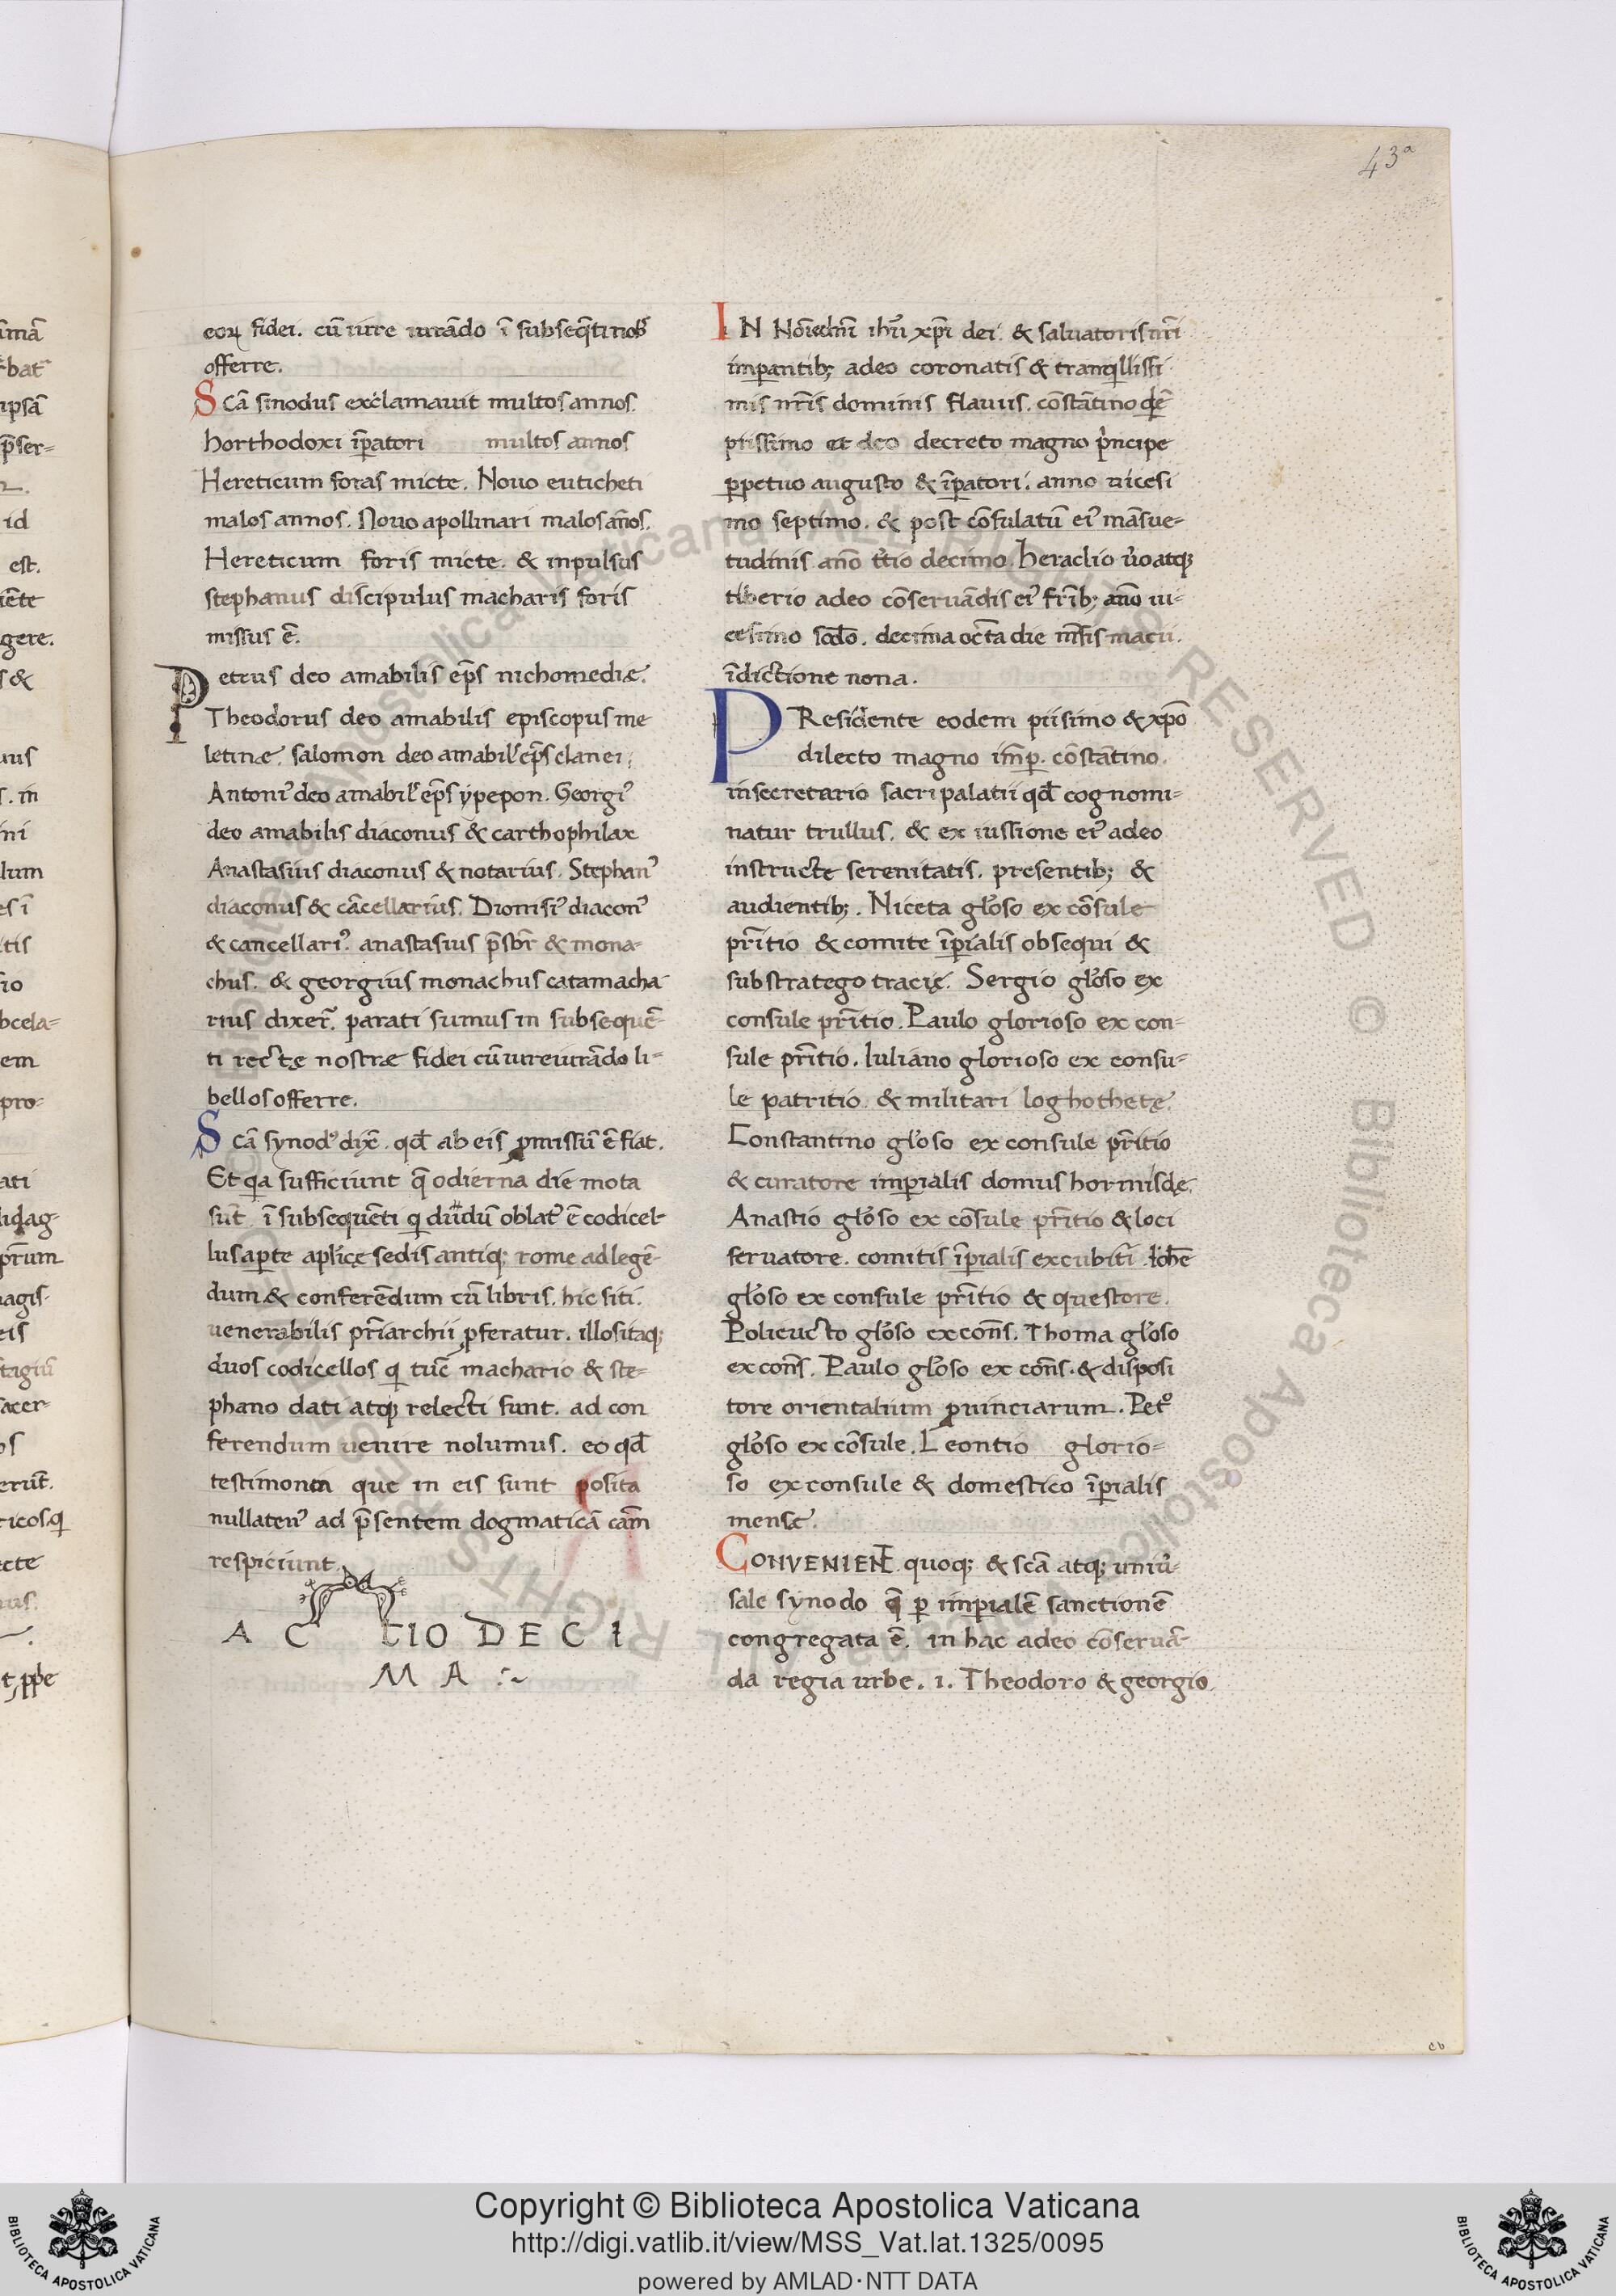 43ª
eoꝝ fidei. cū iure iurādo ī subseq̄ti nob̄
offerre.
Scā sinodus exclamauit multos annos.
horthodoxi īp̄atori multos annos
Hereticum foras micte. Nouo euticheti
malos annos. Nouo apollinari malos ān̄os.
Hereticum foris micte. & inpulsus
stephanus discipulus macharis foris
missus ē.
Petrus deo amabilis ep̄s nichomediæ.
Theodorus deo amabilis episcopus me
letinæ. salomon deo amabil' ep̄s clanei.
Antoni᾽ deo amabil' ep̄s ypepon. Georgi᾽
deo amabilis diaconus & carthophilax
Anastasius diaconus & notarius. Stephan᾽
diaconus & cācellarius. Dionisi᾽ diacon᾽
& cancellari᾽. anastasius p̄sbr̄ & mona-
chus. & georgius monachus catamacha
rius dixer̄. parati sumus in subsequē-
ti rectę nostræ fidei cū iureiurādo li-
bellos offerre.
Scā synod᾽ dix̄. qd̄ ab eis ꝓmissū ē fiat.
Et qa sufficiunt q̄ odierna die mota
sūt ī subsequēti q dudū oblat᾽ ē codicel-
lus aꝑte apl'icę sedis antiq; rome ad legē-
dum & conferēdum cū libris. hic siti.
uenerabilis pr̄iarchii ꝓferatur. illos itaq;
duos codicellos q tūc machario & ste-
phano dati atq; relecti sunt. ad con
ferendum uenire nolumus. eo qd̄
testimonia que in eis sunt posita
nullaten᾽ ad p̄sentem dogmaticā cām
respiciunt.
ACTIO DECI
MA :~
IN Nōie dn̄i ihū xp̄i dei. & saluatoris nr̄i
imꝑantib; adeo coronatis & tranqllissi
mis nr̄is dominis flauus. cōstātino q̨ē
ptissimo et deo decreto magno pncipe
ꝑpetuo augusto & īꝑatori. anno uicesi
mo septimo. & post cōsulatū ei᾽ māsue-
tudinis an̄o t̄tio decimo. heraclio u᾽o atq;
tiberio adeo cōseruādis ei᾽ fr̄ib; an̄o ui-
cesimo scd̄o. decima octa die m̄sis marcii.
īdictione nona.
PResidente eodem piisimo & xp̄o
dilecto magno im̄ꝑ. cōstātino.
insecretario sacri palatii qd̄ cognomi-
natur trullus. & ex iussione ei᾽ adeo
instructe serenitatis. presentib; &
audientib;. Niceta gl'oso ex cōsule
pr̄itio & comite īꝑialis obsequi &
substratego tracię. Sergio gl'oso ex
consule pr̄itio. Paulo glorioso ex con-
sule pr̄itio. Iuliano glorioso ex consu-
le patritio & militari loghothetę.
Constantino gl'oso ex consule pr̄itio
& curatore imꝑialis domus hormisdę.
Anastio gl'oso ex cōsule pr̄itio & loci
seruatore. comitis īꝑialis excubiti. Ioh̄e
gl'oso ex consule pr̄itio & questore.
Polieucto gl'oso ex con̄s. Thoma gl'oso
ex con̄s. Paulo gl'oso ex con̄s. & disposi
tore orientalium ꝓuinciarum. Pet᾽
gl'oso ex cōsule. Leontio glorio-
so ex consule & domestico īꝑialis
mensæ.
CONVENIENTE quoq; & scā atq; uniu᾽
sale synodo q̄ ꝑ imꝑialē sanctionē
congregata ē. in hac adeo cōseruā-
da regia urbe. i. Theodoro & georgio.
Copyright © Biblioteca Apostolica Vaticana
http://digi.vatlib.it/view/MSS_Vat.lat.1325/0095
powered by AMLAD·NTT DATA